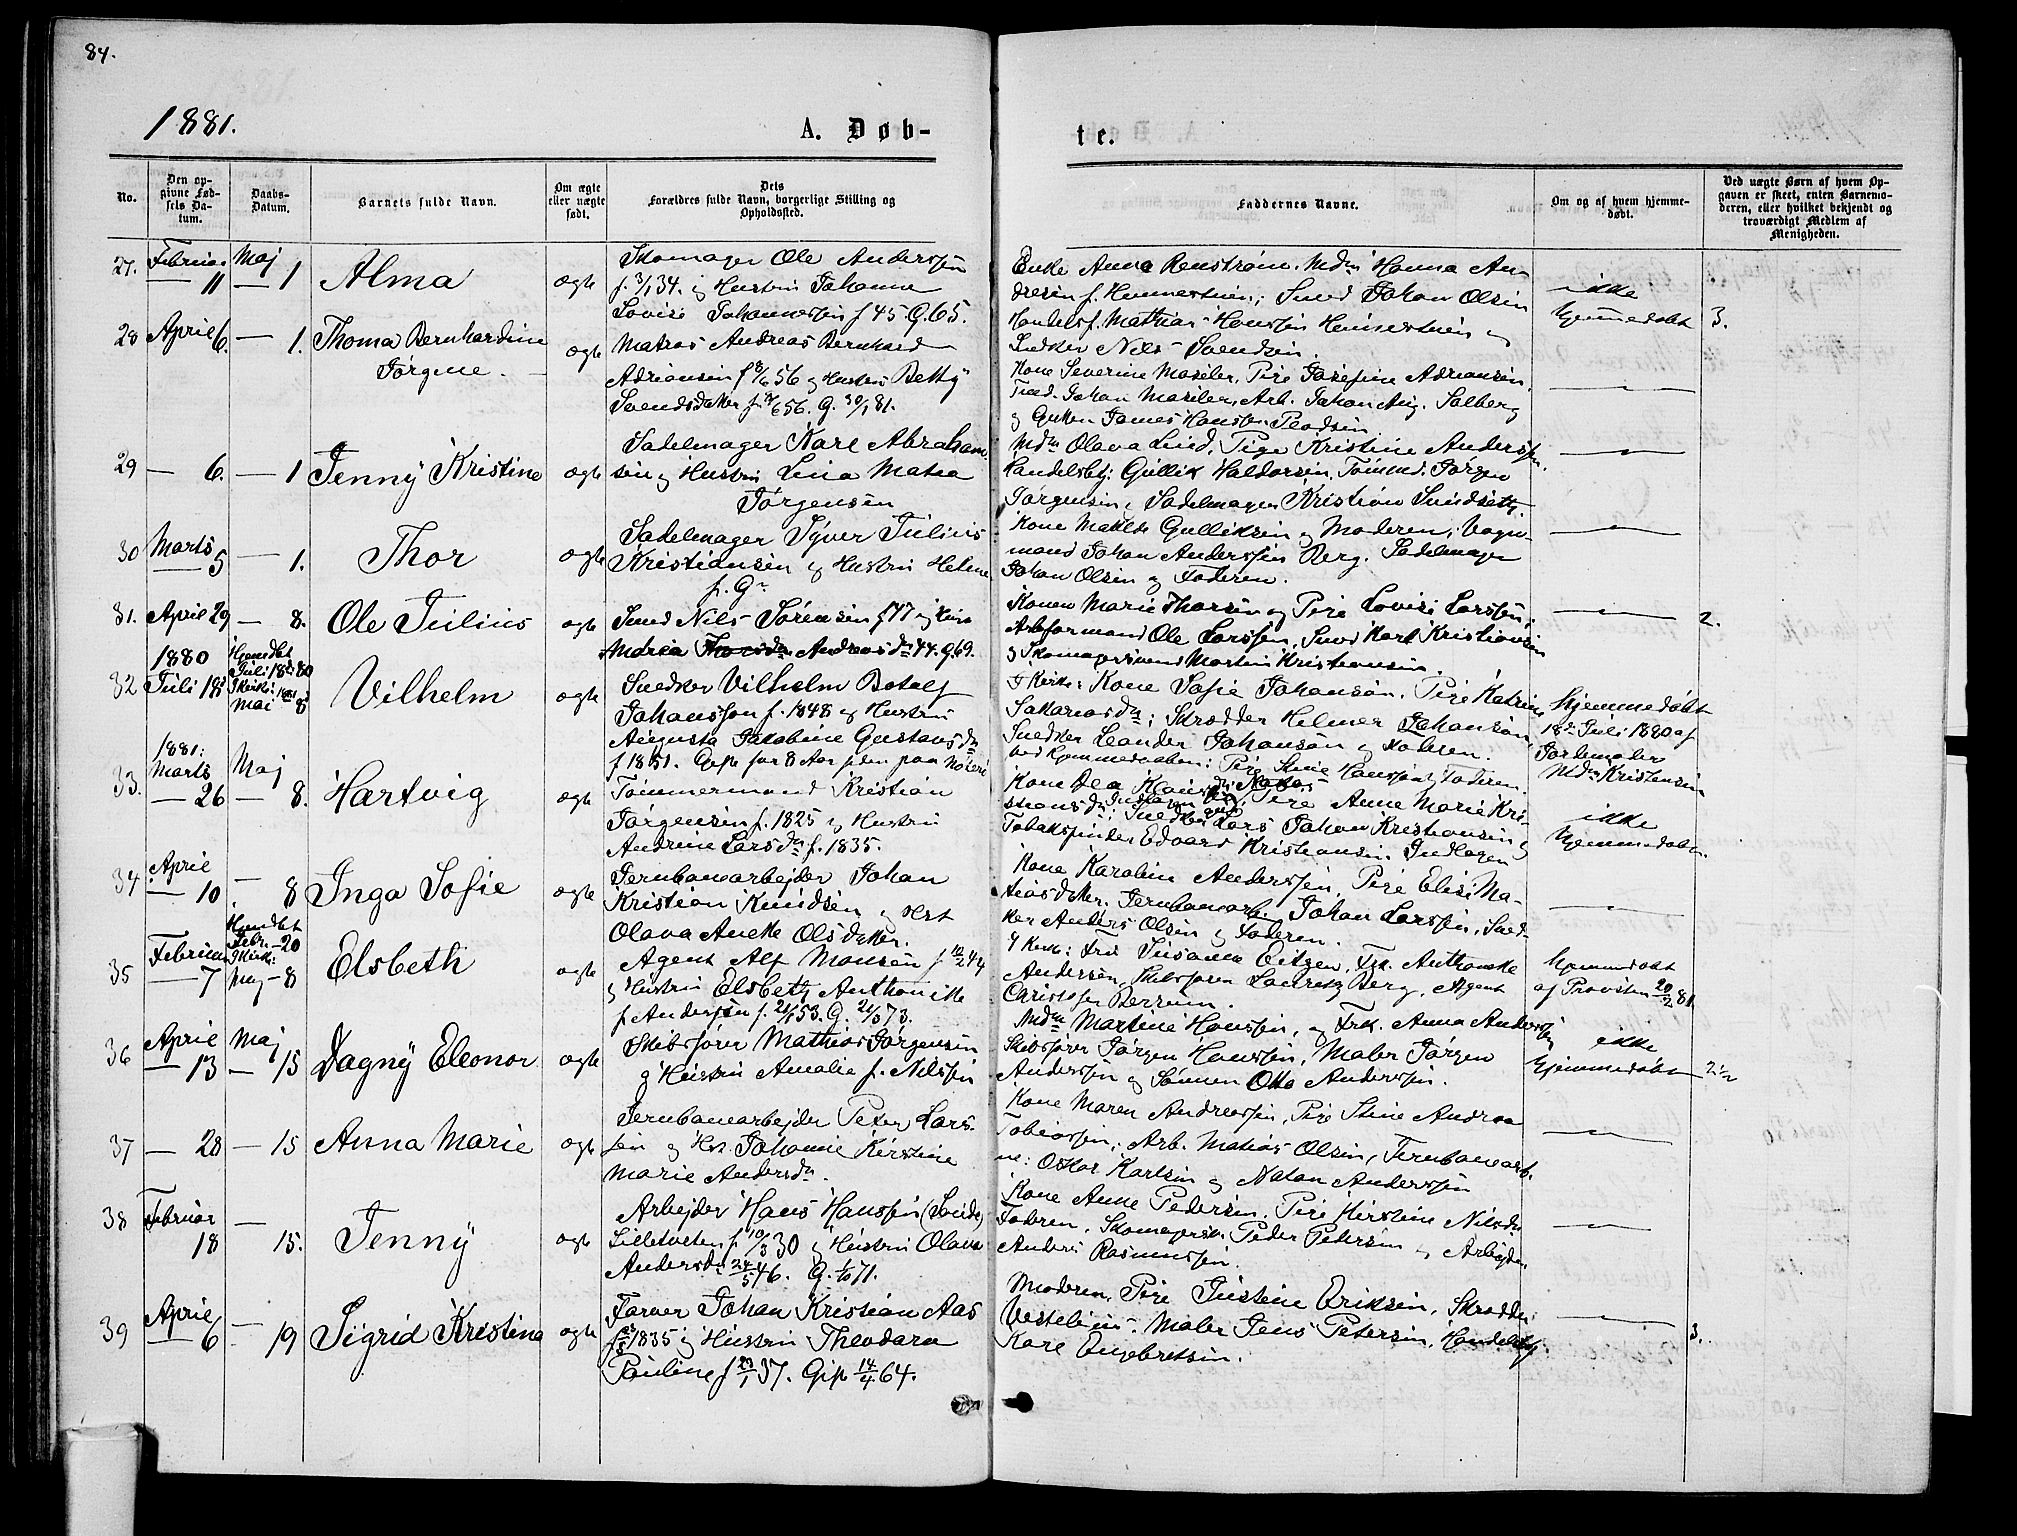 84.
1881.
A. Døb-
te.
No.
Den op-
givne Fød-
sels Da-
tum.
Daabs-
Datum.
Barnets fulde Navn.
Om ægte
eller uægte
født.
Dets
Forældres fulde Navn, borgerlige Stilling og
Opholdssted.
Faddernes Navne.
Om og af hvem hjemme-
døbt.
Ved uægte Børn af hvem Op-
gaven er skeet, enten Barnemo-
deren, eller hvilket bekjendt og
troværdigt Medlem af
Menigheden.
27. Februar 11 Maj 1 Alma ægte
Skomager Ole Anderssen
f. 3/1 34. og Hustru Johanne
Lovise Johannessen f 45 G. 65.
Enke Anna Renstrøm. Mdm Hanna An-
dresen f. Smed Johan Olsen
Handelsf. Mathias Hanssen og
Snedker Nils Svendsen.
ikke
hjemmedøbt
3.
28 April 6. — 1. Thoma Bernhardine
Jørgine. ægte
Matros Andreas Bernhard
Adriansen f 8/6 56 og Hustru Betty
Svendsdatter f. 656. G. 30/1 81.
Kone Severine Maseler, Pige Josefine Adriansen,
Johan Maseler, Arb. Johan Aug. Solberg
og Gutten James Hanssen
29 — 6. — 1 Jenny Kristine ægte
Sadelmager Karl Abraham
sen og Hustru Lina Matea
Jørgensen
Mdm Olava Lund, Pige Kristine Anderssen.
Handelsbtj. Gullik Haldorsen, Tømmd. Jørgen
Jørgensen, Sadelmager Kristian
30 Marts 5 — 1. Thor ægte
Sadelmager Syver Julius
Kristiansen og Hustru Helene
f. G
Kone Matilde Gulliksen og Moderen, Vogn-
mand Johan Anderssen Berg. Sadelmager
Johan Olsen og Faderen.
31. April 29 — 8. Ole Julius ægte
Smed Nils Sørensen f 47 og Hust
Maria Andreasdtr 44. G. 69.
Konen Marie Thorsen og Pige Lovise Larssen,
Arbformand Ole Larssen, Smed Karl Kristiansen
og Skomagersvend Martin Kristiansen.
32 1880 Juli 18 Hjemdbt
Juli 18 80
I Kirke: 1881
Mai 8
Vilhelm ægte
Snedker Vilhelm Botolf
Johanssen f. 1848 og Hustru
Augusta Jakobine Gustavsdtr
f 1851. Gift for 8 Aar siden paa Nøterø
I Kirke: Kone Sofie Johansen, Pige Katrine
Sakariasdtr; Skrædder Helmer Johansen,
Snedker Leander Johansen og Faderen.
ved hjemmedaaben: Pige Stine Hanssen og Faderen.
hjemmedøbt
18de Juli 1880 af
Jordemoder
Mdm Kristensen
33. 1881: Marts 26 Maj 8. Hartvig ægte
Tømmermand Kristian
Jørgensen f. 1825 og Hustru
Andrine Larsdtr f. 1835.
Kone Dea Pige Anne Marie Kri-
stiansdtr; Snedker Lars Johan Kristiansen og
Tobakspinder Edvard Kristiansen.
ikke
hjemmedøbt.
34 April 10 — 8 Inga Sofie ægte
Jernbanearbejder Johan
Kristian Knudsen og Hst
Olava Aneke Olsdatter.
Kone Karoline Anderssen, Pige Elise Ma-
tiasdatter, Jernbanearb. Johan Larssen, Sned-
ker Anders Olsen og Faderen.
35 Februar 7 Hjemdbt
Febr. 20
I Kirke:
Maj 8
Elsbeth ægte
Agent Alf Monsen f 10/2 44
og Hustru Elsbeth Anthonitte
f Andersen f. 21/1 53. G. 21/5 73.
I Kirke: Fru Susanna Eitzen, Frk. Anthonette
Andersen, Skibsfører Lauretz Berg, Agent
Christofer Berrum.
hjemmedøbt
af Provsten 20/2 81.
36 April 13 Maj 15 Dagny Eleonor ægte
Skibsfører Mathias Jørgensen
og Hustru Amalie f. Nilssen
Mdm Martine Hanssen, og Frk. Anna Anderssen
Skibsfører Jørgen Hanssen, Maler Jørgen
Anderssen og Sønnen Otto Anderssen.
ikke
hjemmedøbt
2 1/2
37 — 28 — 15 Anna Marie ægte
Jernbanearbejder Peter Lars-
sen og Hst. Johanne Kirstine
Marie Andersdtr.
Kone Maren Andreassen, Pige Stine Andrea
Tobiassen; Arb. Matias Olsen, Jernbanearb.
ne: Oskar Karlsen og Natan Anderssen
38 Februar 18 — 15. Jenny ægte
Arbejder Hans Hanssen (Svids)
Lilletveten f. 10/3 30 og Hustru Olava
Andersdtr 24/5 46. G. 1/10 71.
Kone Anne Pedersen, Pige Kirstine Nilsdtr
Faderen, Skomagersv. Peder Petersen og Arbejder
Anders Rasmussen.
39 April 6 — 19 Sigrid Kristine ægte
Farver Johan Kristian Aas
f. 1835 og Hustru Theodora
Pauline f 29/1 37. Gift 14/4 64.
Moderen, Pige Justine Eriksen, Skrædder
Maler Jens Petersen, Handelsbtj.
Karl Engebretsen.
3.